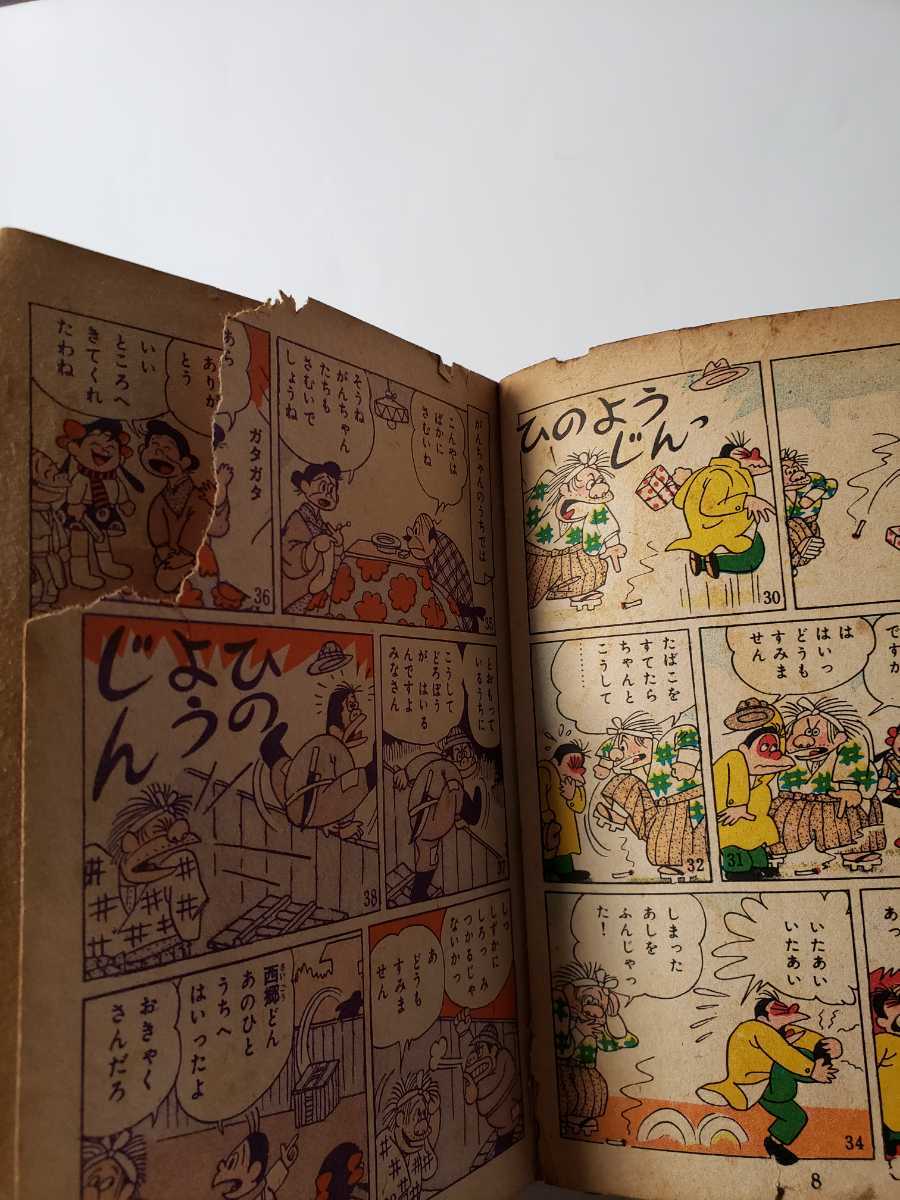 ひのよう
じんっ
30
ですか
は
はいっ
どうも
すみま
せん
31
たばこを
すてたら
ちゃんと
こうして
………
32
あっ
いたあい
いたあい
しまった
あしを
ふんじゃっ
た!
34
8
がんちゃんのうちでは
こんやは
ばかに
さむいね
そうね
がんちゃん
たちも
さむいで
しょうね
35
あら
ありが
とう
いい
ところへ
きてくれ
たわね
ガタガタ
36
とおもって
いるうちに
こうして
どろぼう
が はいる
んですよ
みなさん
37
ひの
よう
じん
38
しっ
しずかに
しろっ み
つかるじゃ
ないかっ
あ
どうも
すみま
せん
西郷どん
あのひと
うちへ
はいったよ
おきゃく
さんだろ